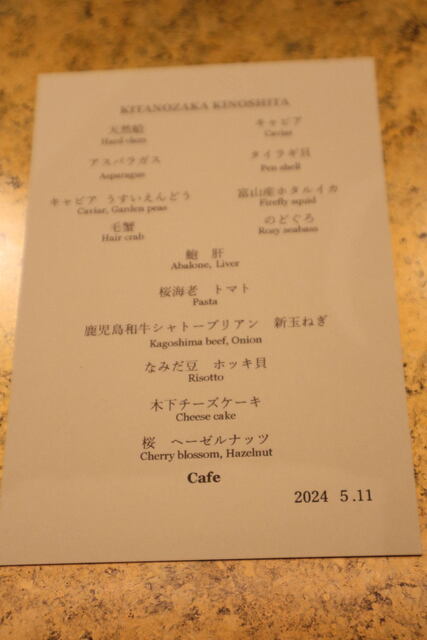 KITANOZAKA KINOSHITA
天然蛤
Hard clam
キャビア
Caviar
アスパラガス
Asparagus
タイラギ貝
Pen shell
キャビア うすいえんどう
Caviar, Garden peas
富山産ホタルイカ
Firefly squid
毛蟹
Hair crab
のどぐろ
Rosy seabass
鮑 肝
Abalone, Liver
桜海老 トマト
Pasta
鹿児島和牛シャトーブリアン 新玉ねぎ
Kagoshima beef, Onion
なみだ豆 ホッキ貝
Risotto
木下チーズケーキ
Cheese cake
桜 ヘーゼルナッツ
Cherry blossom, Hazelnut
Cafe
2024 5.11